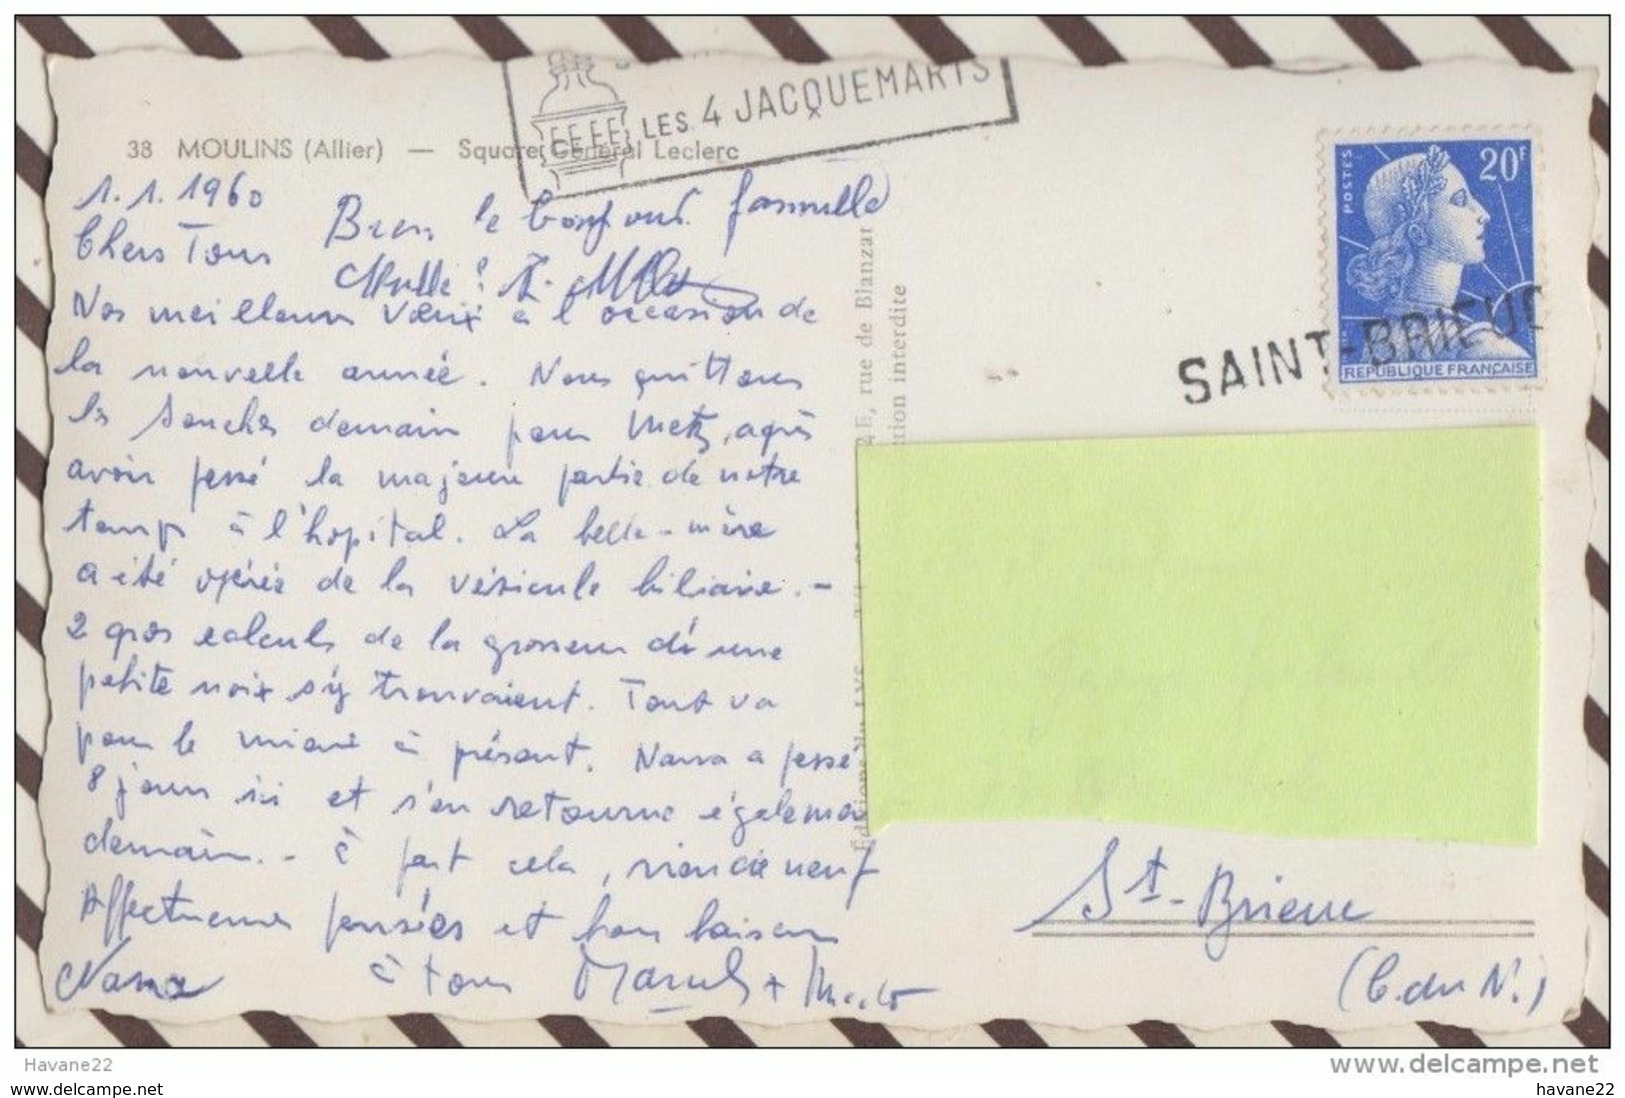 LES 4 JACQUEMARTS
38 MOULINS (Allier) — Square Général Leclerc
1.1.1960
Bien le bonjour
Chers Tous
Nos meilleurs vœux à l'occasion de
la nouvelle année. Nous quittons
les Souches demain pour Metz, après
avoir passé la majeure partie de notre
temps à l'hopital. La belle-mère
a été opérée de la vésicule biliaire. -
2 gros calculs de la grosseur d'une
petite noix s'y trouvaient. Tout va
pour le mieux à présent. Nana a passé
8 jours ici et s'en retourne égaleme
demain. - à part cela, rien de neuf
Affectueuses pensées et bons baisers
à tous Marcel +
Nana
Editions du LYS
rue de Blanzat
ction interdite
POSTES
20F
REPUBLIQUE FRANÇAISE
SAINT-BRIEUC
St-Brieuc
(C. du N.)
Havane22
www.delcampe.net
havane22.delcampe.com
havane22